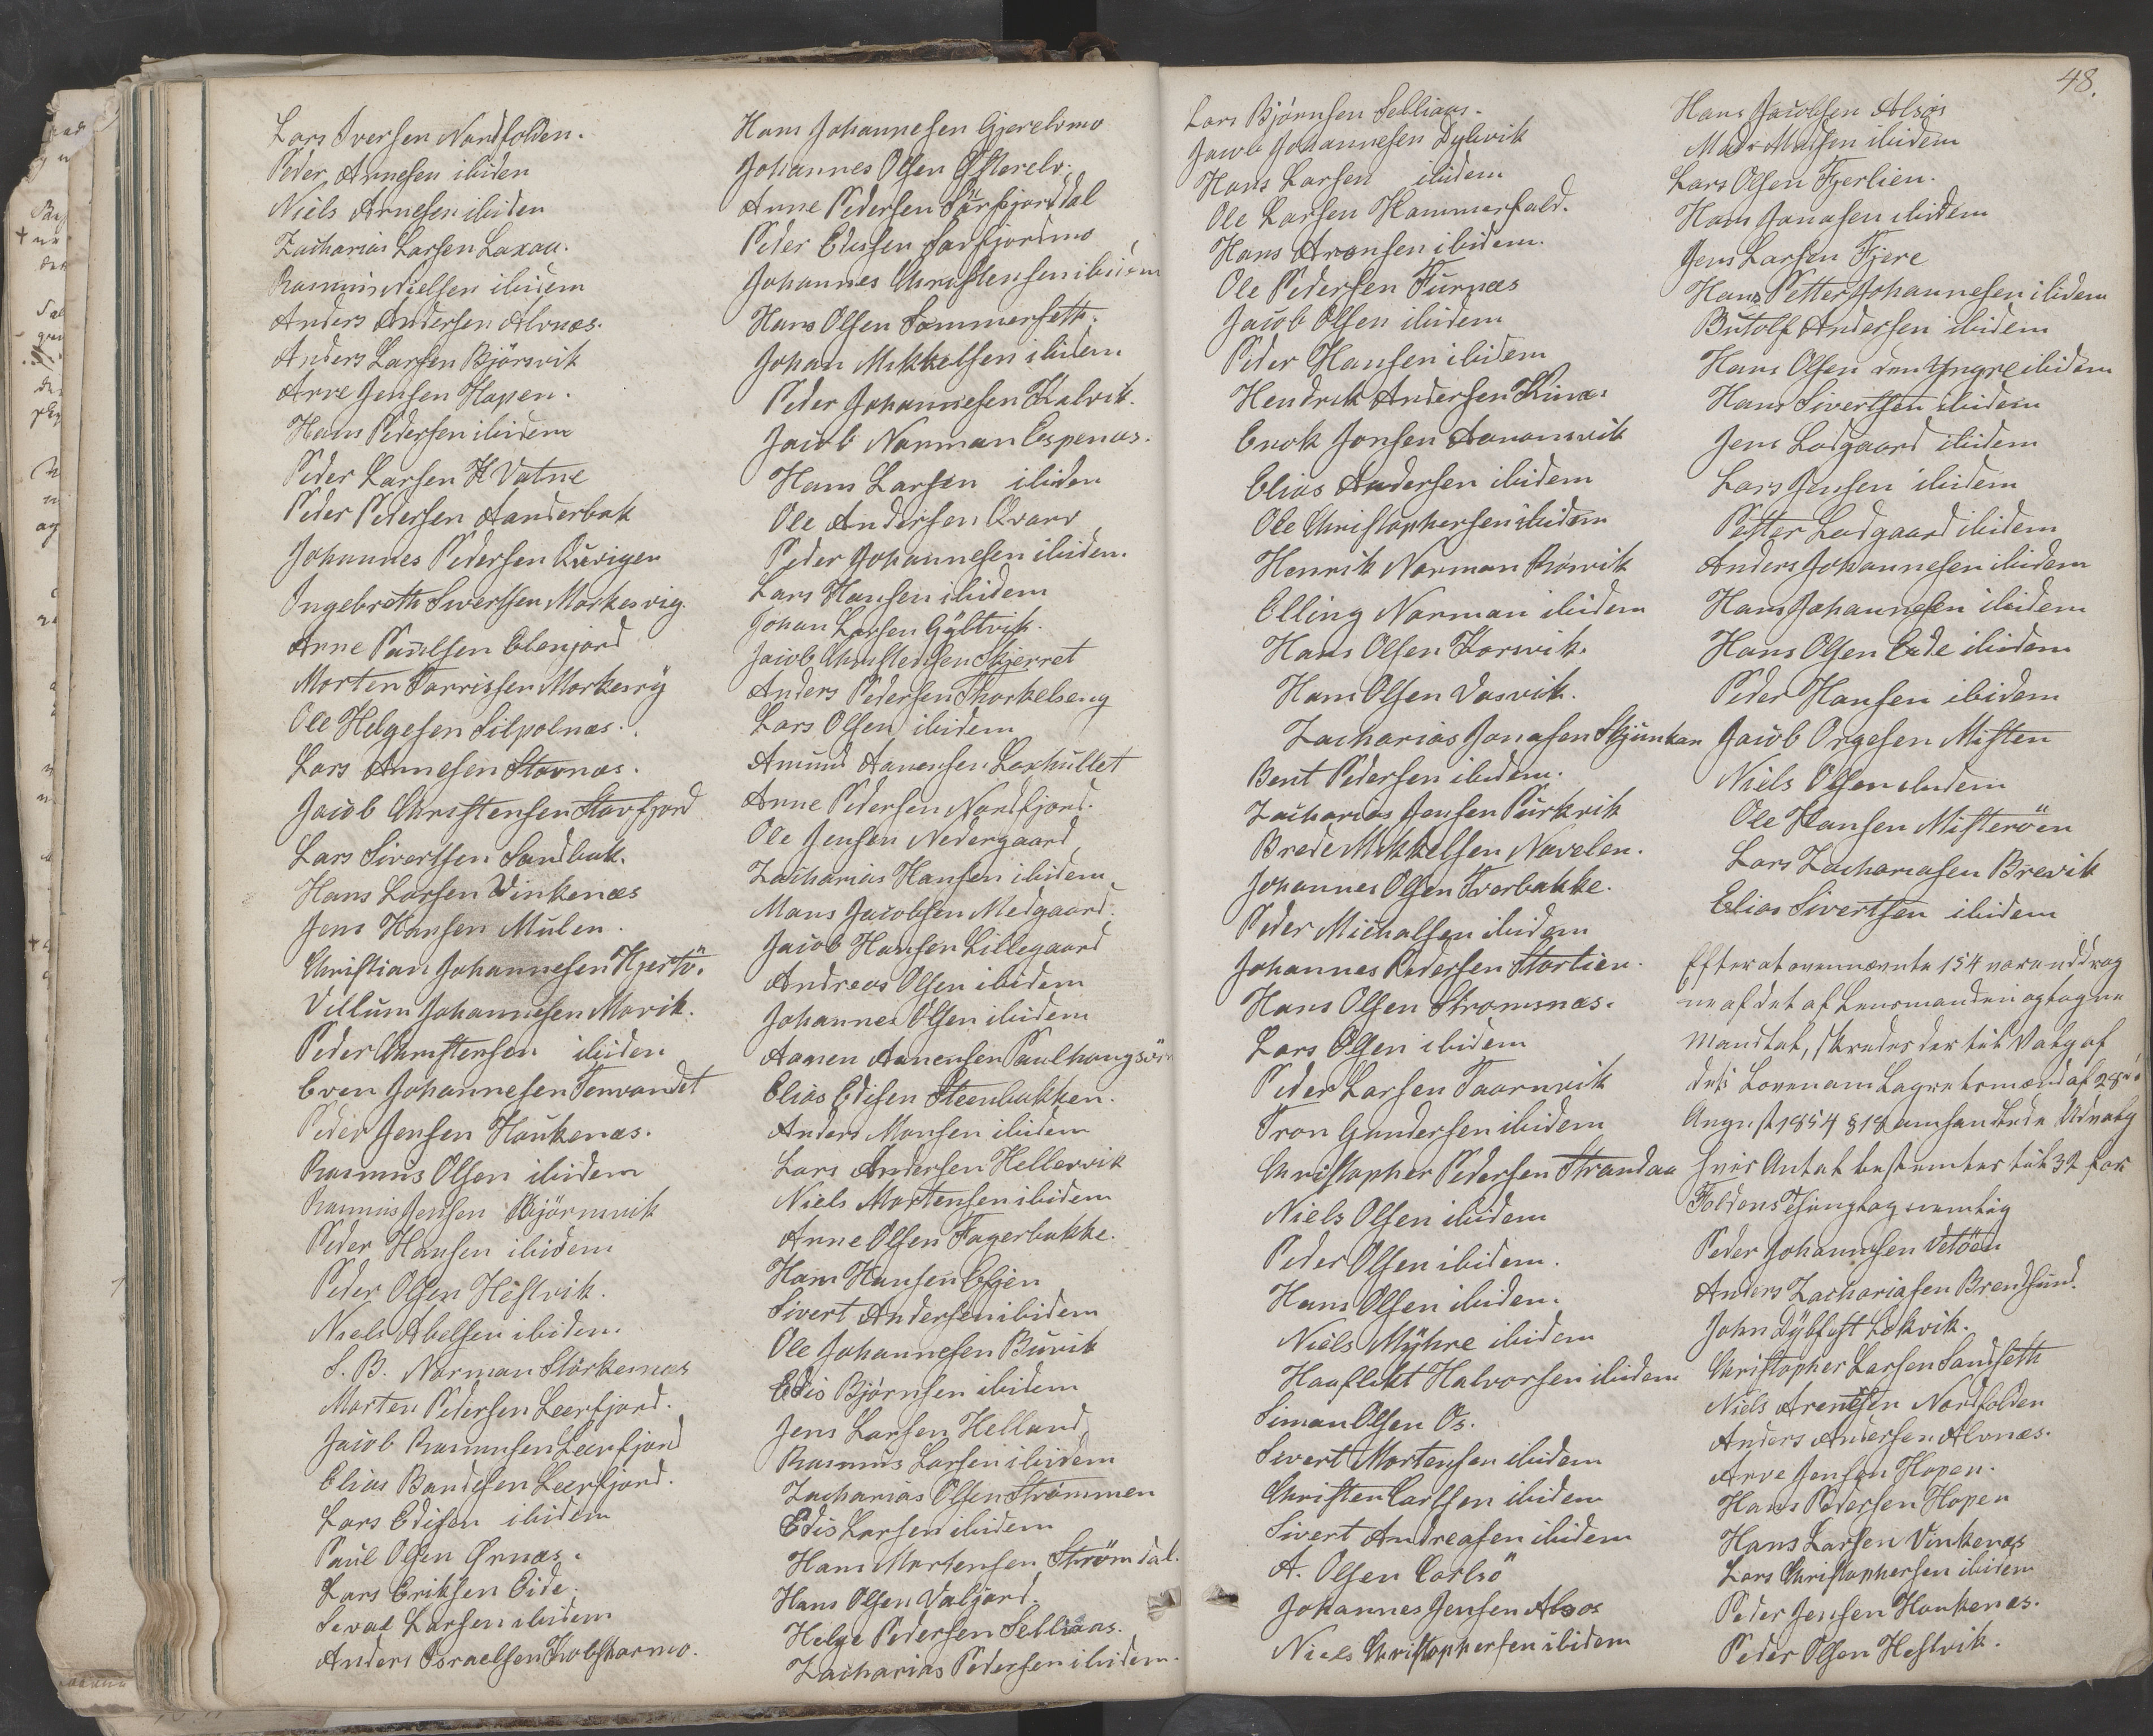 Lars Iversen Nordfolden.
Peder Arnesen ibiden
Niels Arnesen ibiden
Zacharias Larsen Laxaa.
Rasmus Nielsen ibidem
Anders Andersen Alvnæs.
Anders Larsen Bjørsvik
Arve Jensen Hopen.
Hans Pedersen ibidem
Peder Larsen H Vatne
Peder Pedersen Aanderbak
Johannes Pedersen
Ingebreth Sivertsen Morkesvig.
Arne Paulsen Elenjord
Morten Torrissen Morkesvig
Ole Helgesen Silpolnæs.
Lars Arnesen Stovnæs.
Jacob Christensen Storfjord
Lars Sivertsen Sandbak.
Hans Larsen Vinkenæs
Jens Hansen Mulen.
Christian Johannesen Hjertö.
Villum Johannesen Morik.
Peder Christensen ibiden
Even Johannesen Tenvandet
Peder Jensen Houkenæs.
Rasmus Olsen ibidem
Rasmus Jensen Bjørnsvik
Peder Hansen ibidem
Peder Olsen Hestvik.
Niels Abelsen ibiden.
S. B. Norman Storkenæs
Morten Pedersen Leerfjord.
Jacob Rasmusen Leerfjord
Elias Bendesen Leerfjord.
Lars Edisen ibidem
Paul Olsen Ørnæs.
Lars Eriksen Eide.
Larsen ibidem
Anders Israelsen Kobskarmo.
Hans Johannesen Gjerelvmo
Johannes Olsen Østerelv.
Arne Pedersen Sørfjorddal
Peder Edissen Sørfjordmo
Johannes Christensen ibidem
Hans Olsen Sommerseth.
Johan Mikkelsen ibidem
Peder Johannesen Kalvik.
Jacob Norman Espenæs.
Hans Larsen ibiden
Ole Andersen Qvarv
Peder Johannesen ibiden.
Lars Hansen ibidem
Johan Larsen Gyltvik.
Jacob Christensen Skjerret
Anders Pedersen Thorkelseng
Lars Olsen ibidem
Amund Aanensen Laxhullet
Arne Pedersen Nordfjord.
Ole Jensen Nedergaard
Zacharias Hansen ibidem
Mons Jacobsen Medgaard.
Jacob Hansen Lillegaard
Andreas Olsen ibidem
Johannes Olsen ibidem
Aanen Aanensen
Elias Edisen Steenbakken.
Anders Monsen ibidem
Lars Andersen Hellervik
Niels Mortensen ibidem
Arne Olsen Fagerbakke.
Hans Hansen Efjen
Sivert Andersen ibidem
Ole Johannesen Buvik
Edis Bjørnsen ibidem
Jens Larsen Helland
Rasmus Larsen ibidem
Zacharias Olsen Strømmen
Edis Larsen ibidem
Hans Mortensen Strømdal.
Hans Olsen Valjord.
Helge Pedersen Selliaas.
Zacharias Pedersen ibidem.
48.
Lars Bjørnsen Selliaas.
Jacob Johannesen Dybvik
Hans Larsen ibidem
Ole Larsen Hammerfald.
Hans Aronsen ibidem.
Ole Pedersen Furnæs
Jacob Olsen ibidem
Peder Hansen ibidem
Hendrik Andersen Kinæs
Enok Jonsen Aanonsvik
Elias Andersen ibidem
Ole Christophersen ibidem
Henrik Norman Rørvik
Elling Norman ibidem
Hans Olsen Korsvik.
Hans Olsen Vasvik.
Zacharias Jonasen Skjunkan
Bent Pedersen ibidem.
Zacharias Jensen Purkvik
Brede Mikkelsen Navelen.
Johannes Olsen Tverbakke.
Peder Michalsen ibidem
Johannes Pedersen Storlien.
Hans Olsen Stromsnæs.
Lars Olsen ibidem
Peder Larsen Taarnvik
Tron Gundersen ibidem
Christopher Pedersen Strandaa
Niels Olsen ibidem
Peder Olsen ibidem.
Hans Olsen ibidem.
Niels Myhre ibidem
Halvorsen ibidem
Simon Olsen Os.
Sivert Mortensen ibidem
Christen Carlsen ibidem
Sivert Andreasen ibidem
A. Olsen Carlsö
Johannes Jensen Alsos
Niels Christophersen ibidem
Hans Jacobsen Alsos
Mads Madsen ibidem
Lars Olsen Fjerlien.
Hans Jonasen ibidem
Jens Larsen Fjere
Hans Petter Johannesen ibidem
Butolf Andersen ibidem
Hans Olsen den Yngre ibidem
Hans Sivertsen ibidem
Jens Lodgaard ibidem
Lars Jensen ibidem
Petter Lodgaard ibidem
Anders Johannesen ibidem
Hans Johannesen ibidem
Hans Olsen Eide ibidem
Peder Hansen ibidem
Jacob Orgesen Misten
Niels Olsen ibidem
Ole Hansen Misteröen
Lars Zachariasen Brevik
Elias Sivertsen ibidem
Efterat ovennævnte 154 vare uddrag
ne af det af Lensmanden optagne
Mandtal, skredes der til Valg af
det i Loven om Lagrettemænd af 28de
August 1854 § 18 omhandlede Udvalg
hvis Antal bestemtes til 32 for
Foldens Thinglag nemlig
Peder Johannesen Vetöen
Anders Zachariasen Brendsund.
John Dybfest Løkvik.
Christopher Larsen Sandseth
Niels Arentsen Nordfolden
Anders Andersen Alvnæs.
Arve Jensen Hopen.
Hans Pedersen Hopen
Hans Larsen Vinkenæs
Lars Christophersen ibidem
Peder Jensen Houkenæs.
Peder Olsen Hestvik.